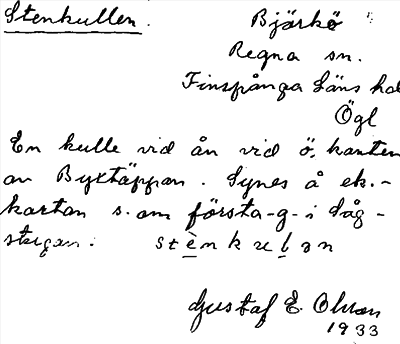 Stenkullen. Björkö
Regna sn.
Finspånga Läns hd
Ögl
En kulle vid ån vid ö. kanten
av Byxtäppan. Synes å ek.-
kartan s. om första -g- i Låg-
stugan. stènkul̥ən
Gustaf E. Olson
1933